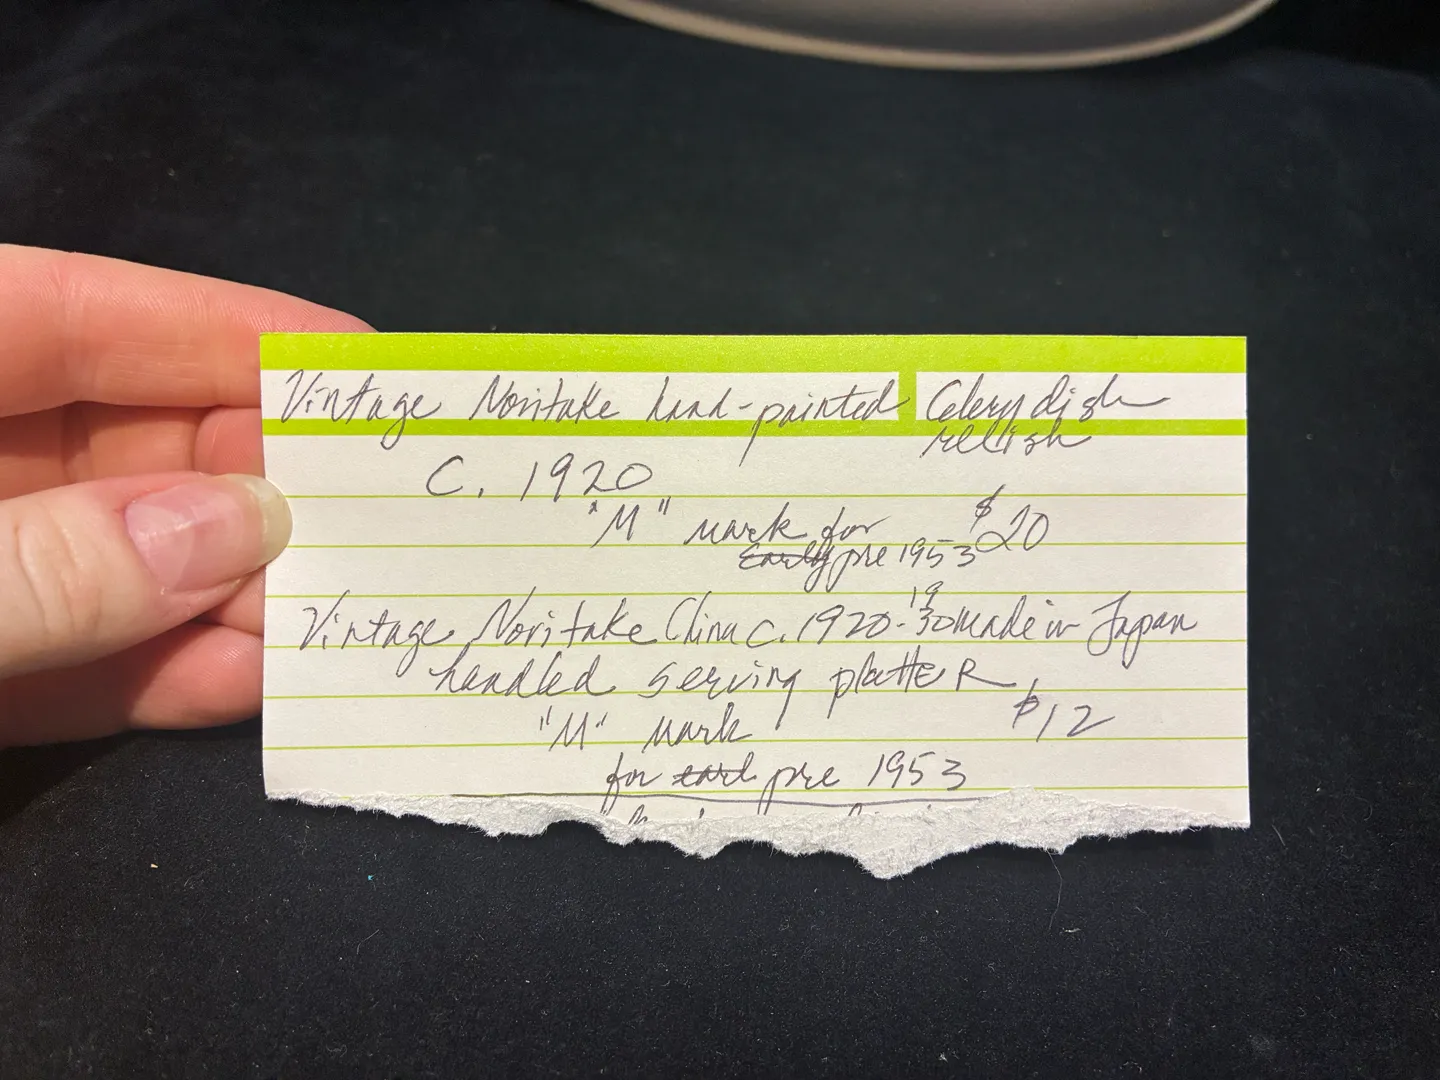 Vintage Noritake hand-painted Celery dish
relish
C. 1920
"M" mark for $20
Early pre 1953
Vintage Noritake China c. 1920-1930 made in Japan
handled serving platter
"M" mark $12
for earl pre 1953